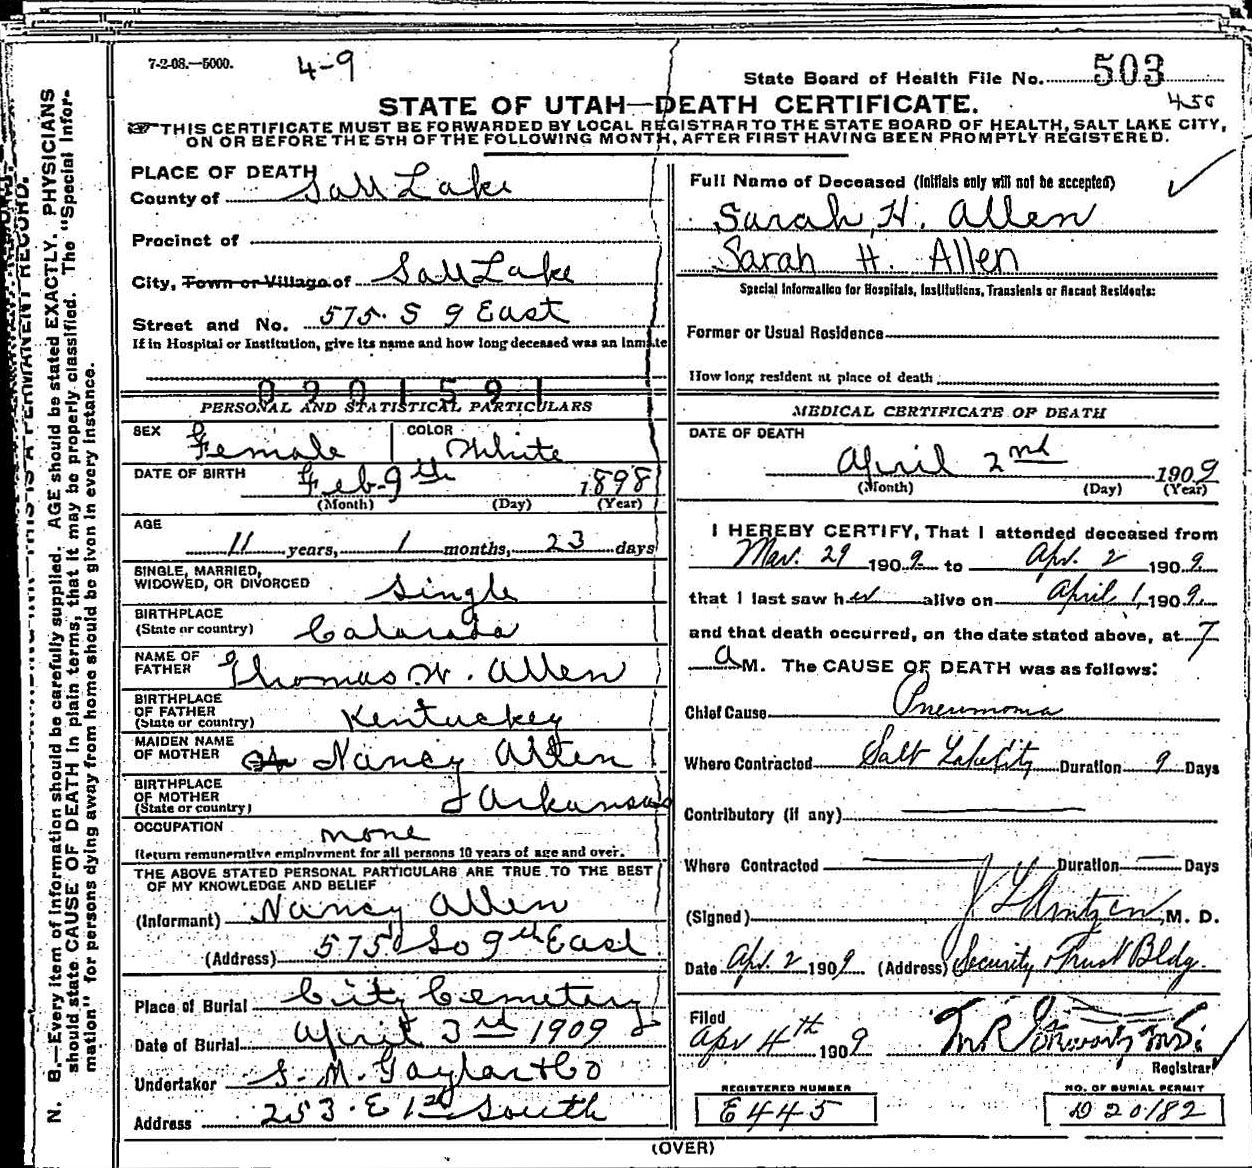 7-2-08.—5000.
4-9
State Board of Health File No. 503
450
STATE OF UTAH—DEATH CERTIFICATE.
THIS CERTIFICATE MUST BE FORWARDED BY LOCAL REGISTRAR TO THE STATE BOARD OF HEALTH, SALT LAKE CITY,
ON OR BEFORE THE 5TH OF THE FOLLOWING MONTH, AFTER FIRST HAVING BEEN PROMPTLY REGISTERED.
PLACE OF DEATH
County of Salt Lake
Precinct of
City, Town or Village of Salt Lake
Street and No. 575. S 9 East
If in Hospital or Institution, give its name and how long deceased was an inmate
0901591
PERSONAL AND STATISTICAL PARTICULARS
SEX Female COLOR White
DATE OF BIRTH Feb. 9th 1898
(Month) (Day) (Year)
AGE
11 years, 1 months, 23 days
SINGLE, MARRIED,
WIDOWED, OR DIVORCED Single
BIRTHPLACE
(State or country) Colorado
NAME OF
FATHER Thomas W. Allen
BIRTHPLACE
OF FATHER
(State or country) Kentuckey
MAIDEN NAME
OF MOTHER Nancy Allen
BIRTHPLACE
OF MOTHER
(State or country) Arkansas
OCCUPATION none
Return remunerative employment for all persons 10 years of age and over.
THE ABOVE STATED PERSONAL PARTICULARS ARE TRUE TO THE BEST
OF MY KNOWLEDGE AND BELIEF
(Informant) Nancy Allen
(Address) 575 So 9th East
Place of Burial City Cemetery
Date of Burial April 3rd 1909
Undertaker S. M. Taylor & Co
Address 253. E 1st South
Full Name of Deceased (Initials only will not be accepted)
Sarah, H. Allen
Sarah H. Allen
Special Information for Hospitals, Institutions, Transients or Recent Residents:
Former or Usual Residence
How long resident at place of death
MEDICAL CERTIFICATE OF DEATH
DATE OF DEATH
April 2nd 1909
(Month) (Day) (Year)
I HEREBY CERTIFY, That I attended deceased from
Mar. 29 1909 to Apr. 2 1909
that I last saw her alive on April 1, 1909
and that death occurred, on the date stated above, at 7
A M. The CAUSE OF DEATH was as follows:
Chief Cause Pneumonia
Where Contracted Salt Lake City Duration 9 Days
Contributory (if any)
Where Contracted Duration Days
(Signed) M. D.
Date Apr. 2 1909 (Address) Security & Trust Bldg.
Filed
Apr 4th 1909
Registrar
REGISTERED NUMBER
E445
NO. OF BURIAL PERMIT
D20182
(OVER)
N. B.—Every item of information should be carefully supplied. AGE should be stated EXACTLY. PHYSICIANS
should state CAUSE OF DEATH in plain terms, that it may be properly classified. The "Special Infor-
mation" for persons dying away from home should be given in every instance.